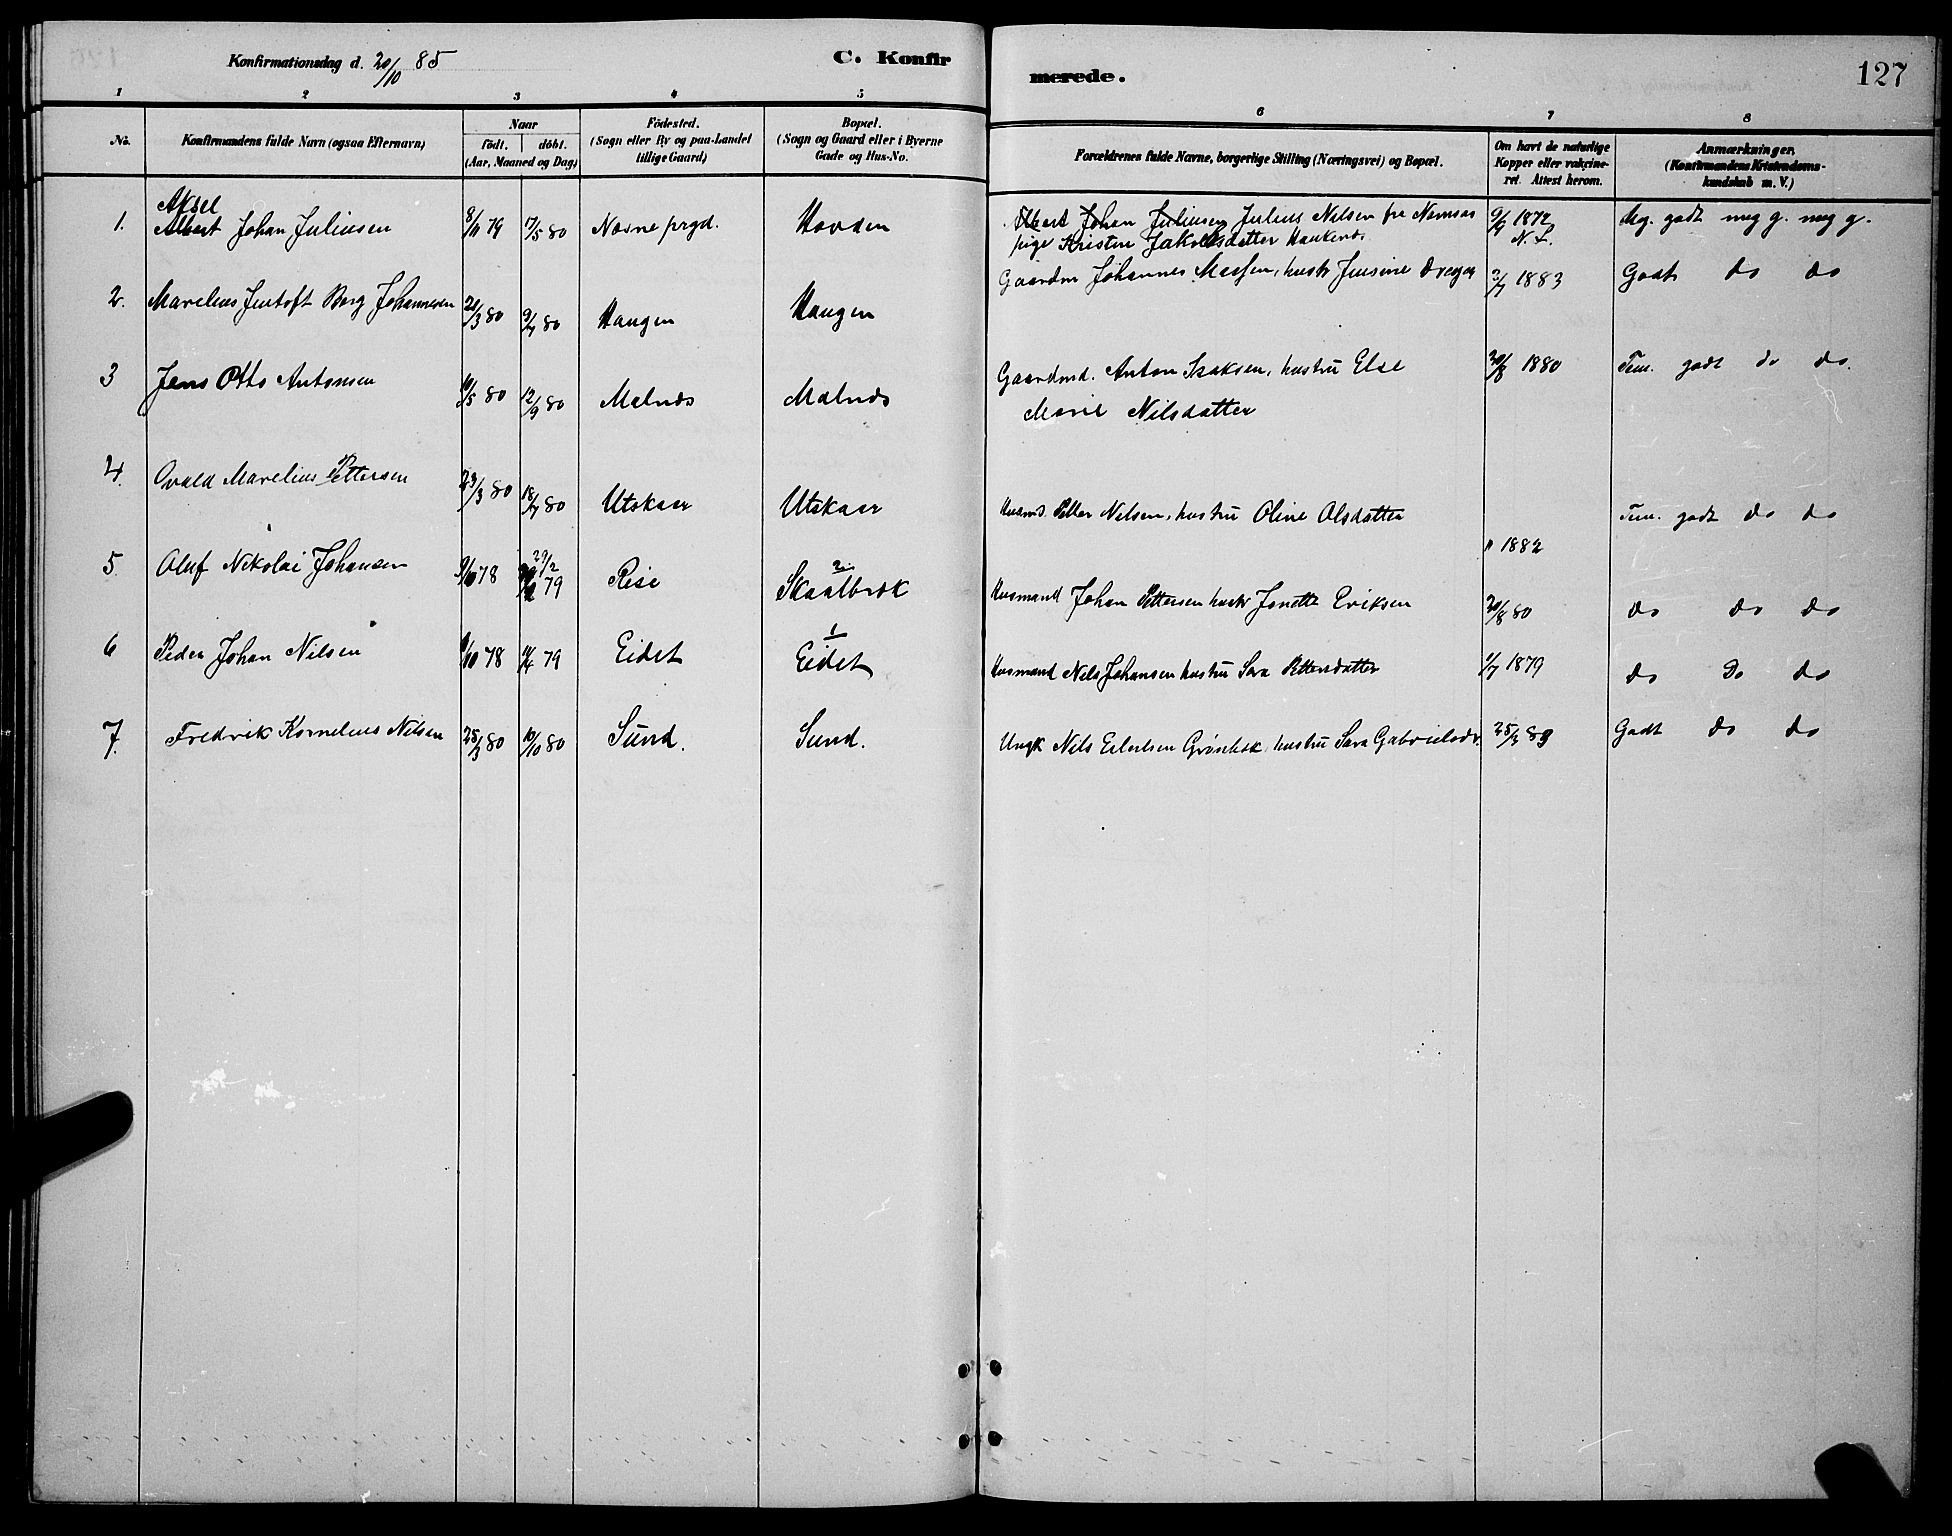 Konfirmationsdag d. 20/10 85
C. Konfir
merede.
127
1 2 3 4 5 6 7 8
No.
Konfirmandens fulde Navn (ogsaa Efternavn)
Naar
födt. döbt.
(Aar, Maaned og Dag)
Födested.
(Sogn eller By og paa Landet
tillige Gaard)
Bopæl.
(Sogn og Gaard eller i Byerne
Gade og Hus-No.
Forældrenes fulde Navne, borgerlige Stilling (Næringsvei) og Bopæl.
Om havt de naturlige
Kopper eller vakcine-
ret. Attest herom.
Anmærkninger.
(Konfirmandens Kristendoms-
kundskab m. V.)
Aksel
1. Albert Johan Juliusen 8/11 79 17/5 80 Næsne prgd. Hovden Johan Juliusen Julius Nilsen fra Namsos 9/9 1872 Mg. godt meg g. meg g.
pige Kristen Jakobsdatter N. L.
2. Marelius Jentoft Borg Johannesen 21/3 80 9/7 80 Haugen Haugen Gaardm Johannes hustr Jensine 3/7 1883 Godt do do
3 Jens Otto Antonsen 10/5 80 12/9 80 Malnes Malnes Gaardmd. Anton Isaksen, hustru Else 30/8 1880 Tem. godt do do.
Marie Nilsdatter
4. Ovald Marelius Pettersen 23/3 80 18/7 80 Utskaar Utskaar Petter Nilsen, hustru Oline Olsdatter " 1882 Tem. godt do do
5. Oluf Nikolai Johansen 9/10 78 29/2 79 Reise Skaalbrek Husmand Johan Pettersen hustr Jonette Eriksen 20/8 80 do do do
6 Peder Johan Nilsen 78 79 Eidet 1 Eidet Husmand Nils Johansen hustru Sara Pettersdatter 1/7 1879 do do do
7. Fredrik Kornelius Nilsen 25/3 80 10/10 80 Sund. Sund. Ungk Nils hustru Sara Gabrielsdr. 25/3 83 Godt do do